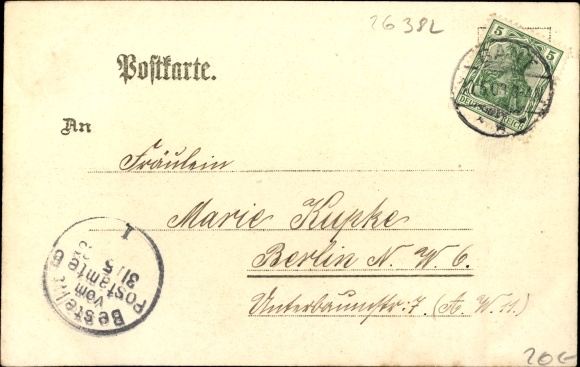 2638L
Postkarte.
5 5
DEUTSCHES REICH
An
Fräulein
Marie Kupke
Berlin N. W. 6.
Unterbaumstr. 7 (A. W. 11.)
Bestellt
vom
Postamte 6
31/5
I
20G